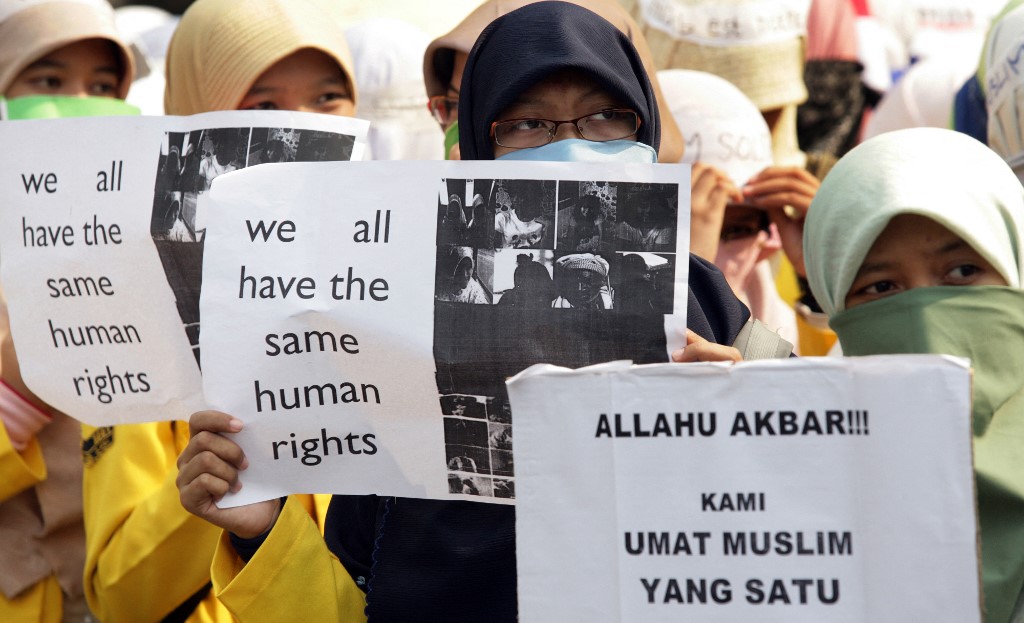 we all
have the
same
human
rights
we all
have the
same
human
rights
ALLAHU AKBAR!!!
KAMI
UMAT MUSLIM
YANG SATU